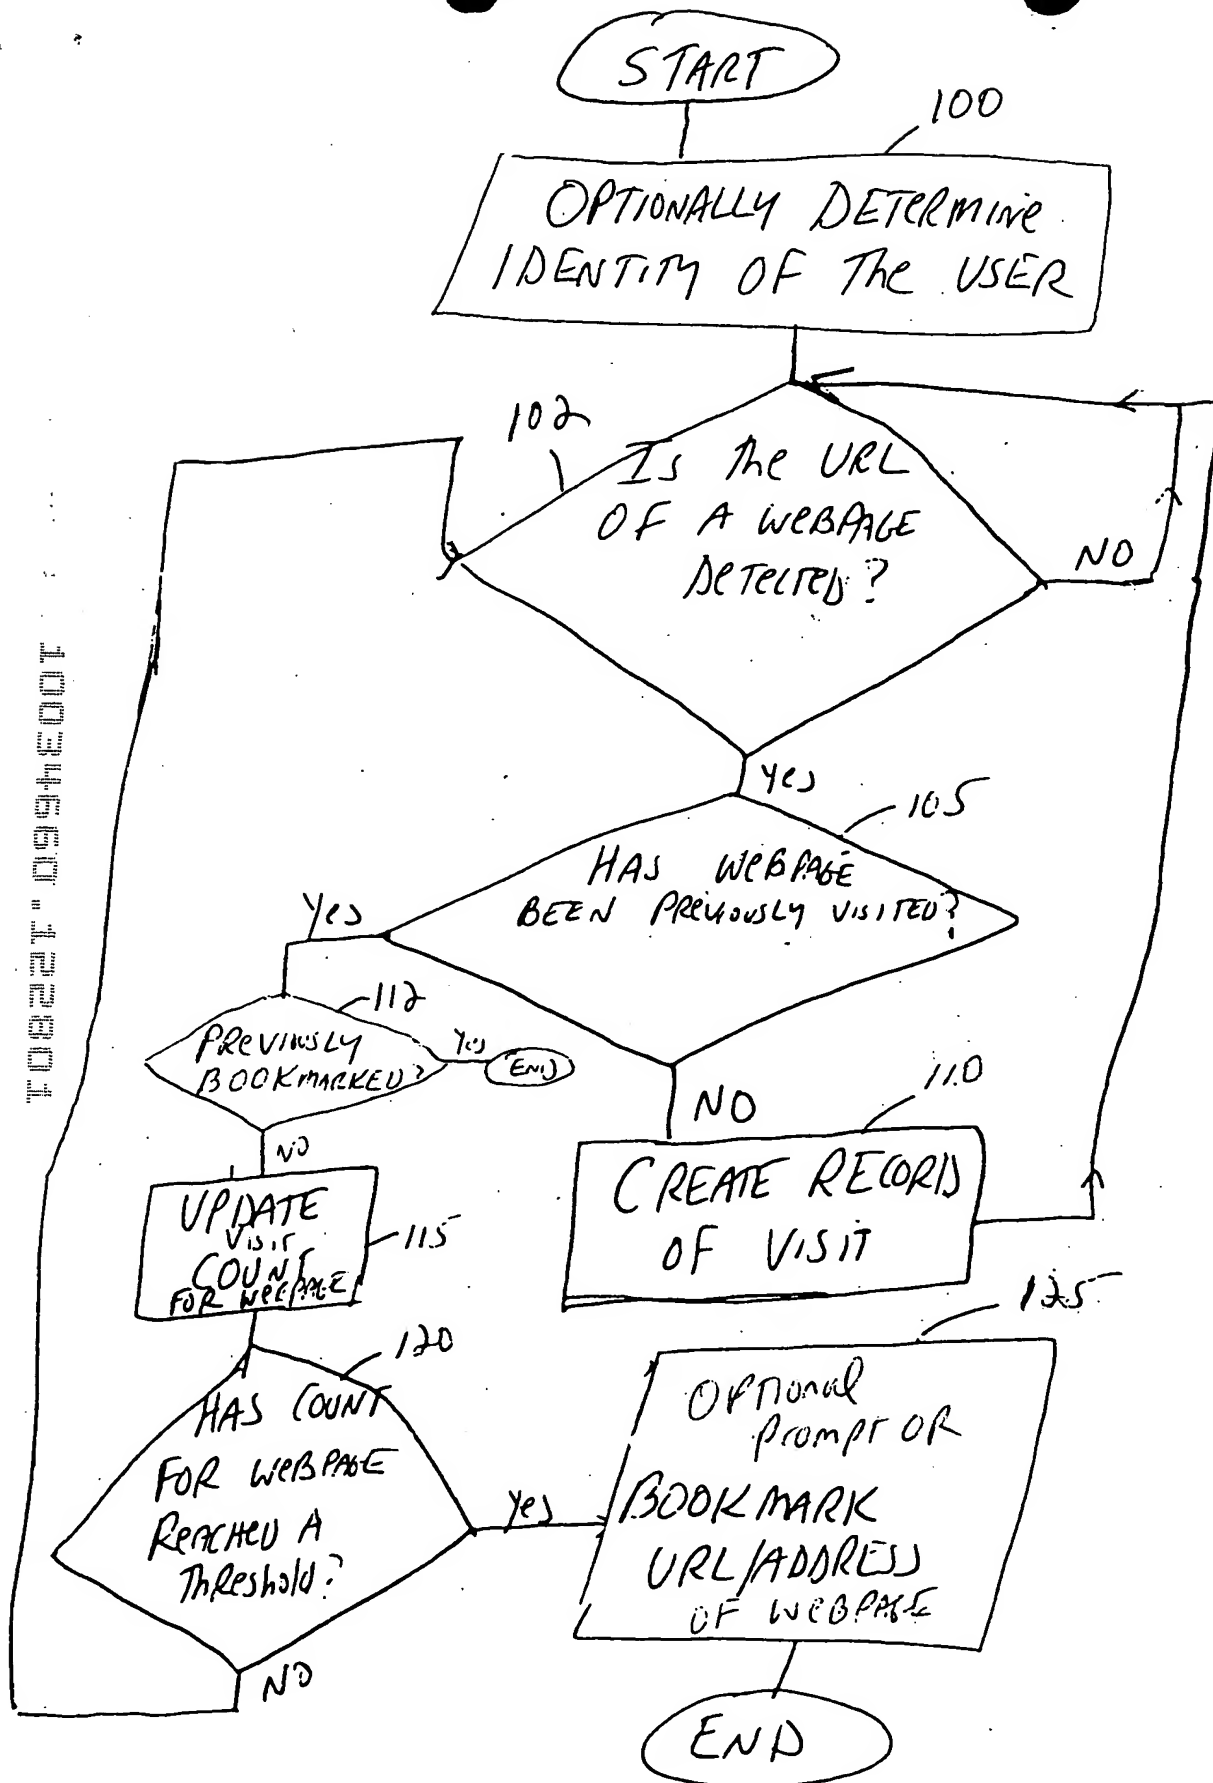 START
100
OPTIONALLY DETERMINE
IDENTITY OF The USER
102
Is The URL
OF A WEBPAGE
DETECTED?
NO
Yes
105
HAS WEBPAGE
BEEN PREVIOUSLY VISITED?
Yes
112
PREVIOUSLY
BOOKMARKED?
Yes
END
NO
NO
110
CREATE RECORD
OF VISIT
UPDATE
VISIT
COUNT
FOR WEBPAGE
115
120
HAS COUNT
FOR WEBPAGE
REACHED A
Threshold?
Yes
NO
125
OPTIONAL
Prompt OR
BOOKMARK
URL/ADDRESS
OF WEBPAGE
END
10034660.122801